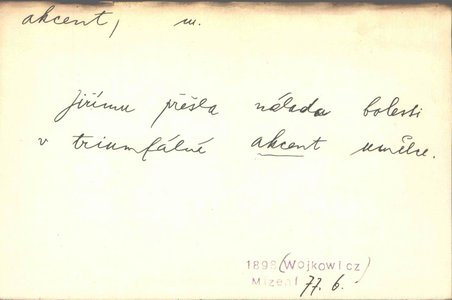 akcent, m.
Jiřímu přešla nálada bolesti
v triumfálné akcent umělce.
1898 (Wojkowicz)
Mizení 77. 6.